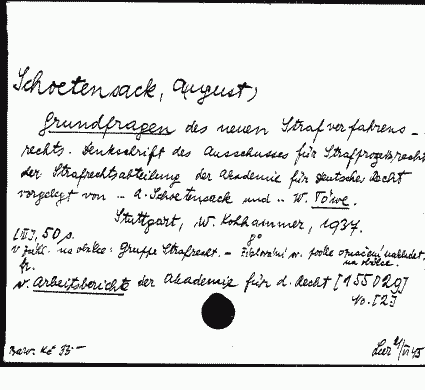 Schoetensack, August)
Grundfragen des neuen Strafverfahrens-
rechts. Denkschrift des Ausschusses für Strafprozeßrecht
der Strafrechtsabteilung der Akademie für Deutsches Recht
vorgelegt von - A. Schoetensack und - W. Töwe.
Stuttgart, W. Kohlhammer, 1937.
[III], 50 s. 8°
v záhl. na obálce: Gruppe Strafrecht. - číslování sv. podle označení naklad.
na obálce.
v. Arbeitsberichte der Akademie für d. Recht [155029]
4. [2]
Barv. Kč 33-